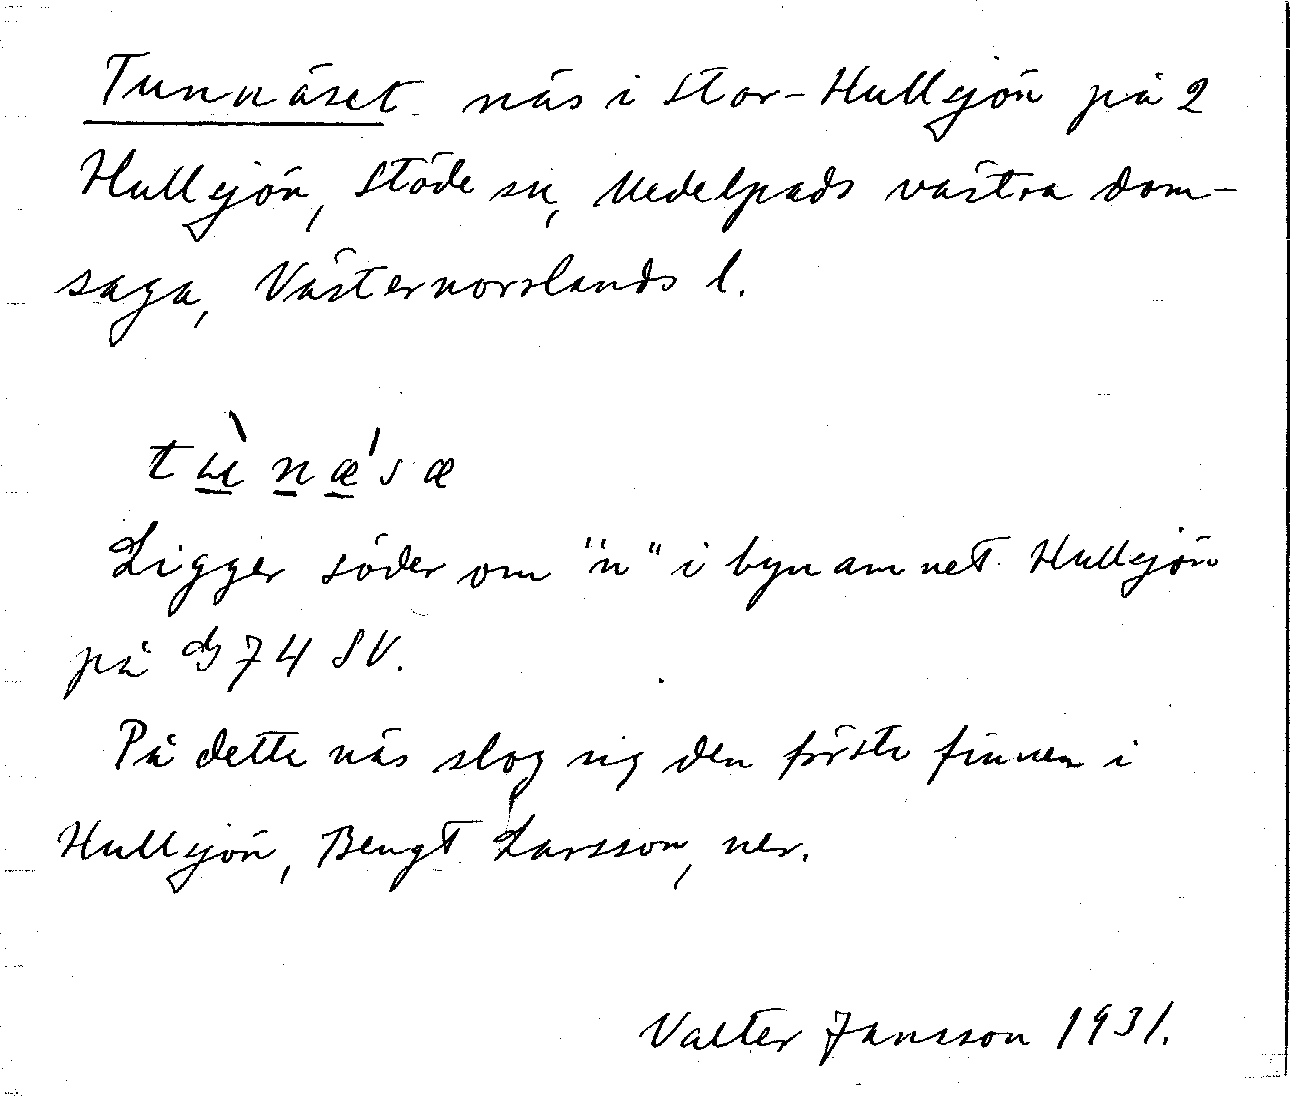 Tunnäset näs i Stor-Hullsjön på 2
Hullsjön, Stöde sn, Medelpads västra dom-
saga, Västernorrlands l.
tùnæ'sæ
Ligger söder om "n" i bynamnet Hullsjön
på 74 SV.
På detta näs slog sig den förste finnen i
Hullsjön, Bengt Larsson, ner.
Valter Jansson 1931.